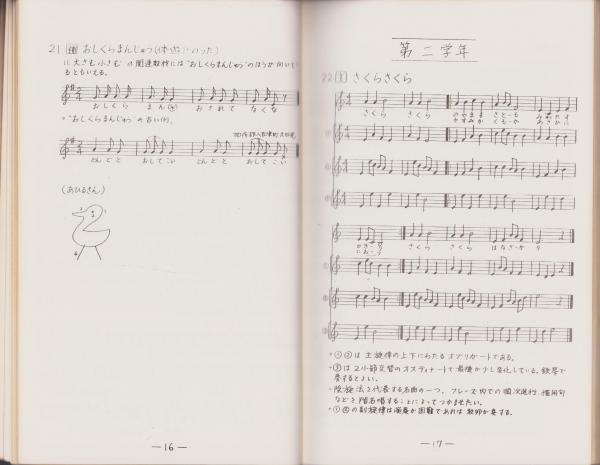 21 補 おしくらまんじゅう(体遊にのった)
に大きむ小さむの関連教材には"おしくらまんじゅう"のほうが向いて
るともいえる。
おしくら まん(じゅう) おされて なくな
。"おしくらまんじゅう"の古い例。
どんどと おしてこい どんどと おしてこい
(あひるさん)
—16—
第二学年
22 主 さくらさくら
さくら さくら のやまも さとも みわたす
かすみか くもか あさひに
かぎり さくら さくら はなざかり
におう
。①②は主旋律の上下にわたるオブリガートである。
。③は2小節交替のオスティナートで最後が少し変化している。鉄琴で
奏するとよい。
。陰旋法を代表する名曲の一つ、フレーズ内での順次進行、慣用句
などを階名唱することによってつかませたい。
。①②の副旋律は演奏が困難であれば教師が奏する。
—17—